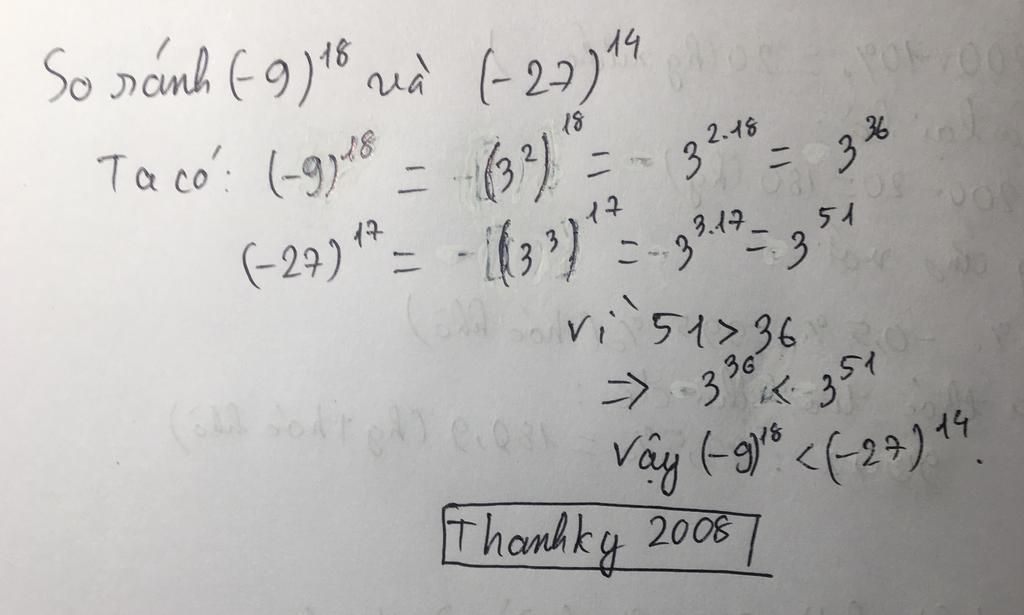 So sánh (-9)^18 và (-27)^14
Ta có: (-9)^18 = (3^2)^18 = 3^2.18 = 3^36
(-27)^17 = -(3^3)^17 = -3^3.17 = 3^51
Vì 51 > 36
=> 3^36 < 3^51
Vậy (-9)^18 < (-27)^14.
Thanhky 2008